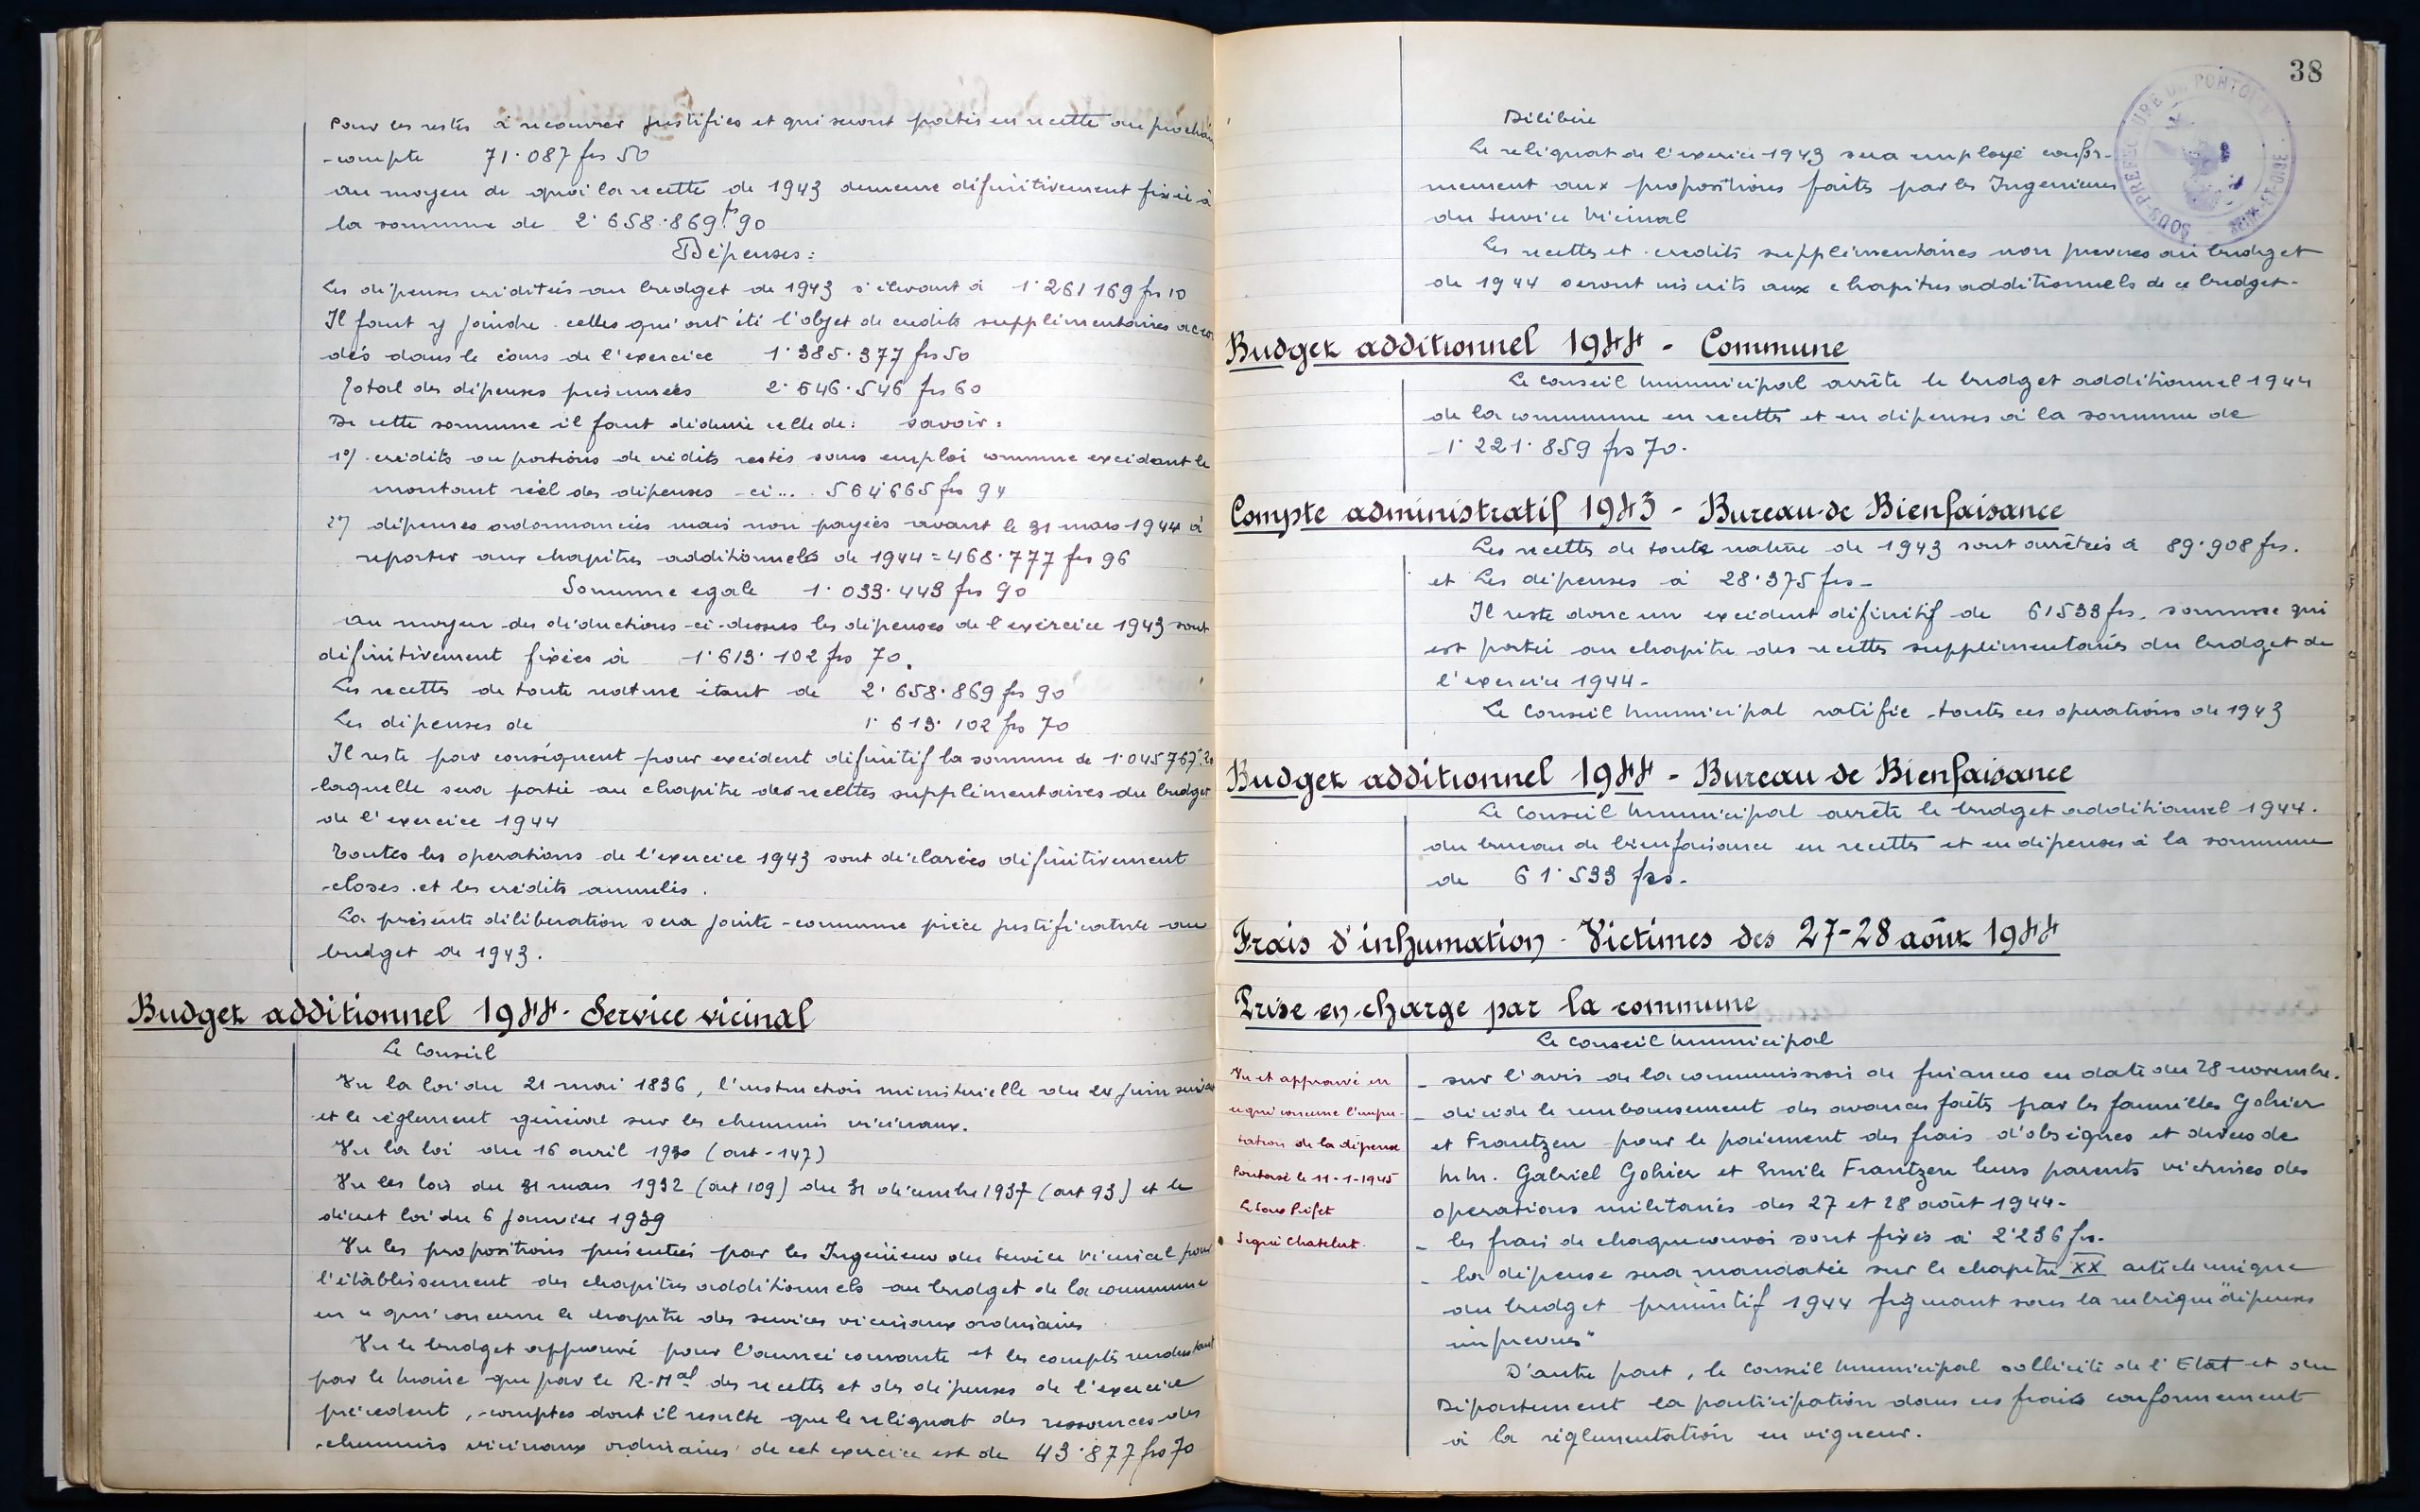 Pour les restes à recouvrer justifiés et qui seront portés en recette au prochain
compte 71.087 frs 50
au moyen de quoi la recette de 1943 demeure définitivement fixée à
la somme de 2.658.869 frs 90
Dépenses :
Les dépenses créditées au budget de 1943 s'élevant à 1.261169 frs 10
Il faut y joindre celles qui ont été l'objet de crédits supplémentaires accor
dés dans le cours de l'exercice 1.385.377 frs 50
Total des dépenses présumées 2.646.546 frs 60
De cette somme il faut déduire celle de : savoir :
1°/ crédits ou portions de crédits restés sans emploi comme excédant le
montant réel des dépenses - ci ... 564.665 frs 94
2°/ dépenses ordonnancées mais non payées avant le 31 mars 1944 à
reporter aux chapitres additionnels de 1944 = 468.777 frs 96
Somme egale 1.033.443 frs 90
au moyen des déductions ci-dessus les dépenses de l'exercice 1943 sont
définitivement fixées à 1.613.102 frs 70.
Les recettes de toute nature étant de 2.658.869 frs 90
Les dépenses de 1.613.102 frs 70
Il reste par conséquent pour excédent définitif la somme de 1.045767.20
laquelle sera portée au chapitre des recettes supplémentaires du budget
de l'exercice 1944
Toutes les opérations de l'exercice 1943 sont déclarées définitivement
closes et les crédits annulés.
La présente délibération sera jointe comme pièce justificative au
budget de 1943.
Budget additionnel 1944 - Service vicinal
Le Conseil
Vu la loi du 21 mai 1836, l'instruction ministérielle du 24 juin suivant
et le règlement général sur les chemins vicinaux.
Vu la loi du 16 avril 1930 (art - 147)
Vu les lois du 31 mars 1932 (art 109) du 31 décembre 1937 (art 93) et le
décret loi du 6 janvier 1939
Vu les propositions présentées par les Ingénieurs du Service Vicinal pour
l'établissement des chapitres additionnels au budget de la commune
en ce qui concerne le chapitre des services vicinaux ordinaires
Vu le budget approuvé pour l'année courante et les comptes rendus tant
par le maire que par le R. Mal des recettes et des dépenses de l'exercice
précédent, comptes dont il résulte que le reliquat des ressources des
chemins vicinaux ordinaires de cet exercice est de 43.877 frs 70
38
SOUS-PREFECTURE DE PONTOISE
Délibère
Le reliquat de l'exercice 1943 sera employé confor-
mément aux propositions faites par les Ingenieurs
du Service Vicinal
Les recettes et crédits supplémentaires non prévues au budget
de 1944 seront inscrits aux chapitres additionnels de ce budget-
Budget additionnel 1944 - Commune
Le Conseil Municipal arrête le budget additionnel 1944
de la commune en recettes et en dépenses à la somme de
1.221.859 frs 70.
Compte administratif 1943 - Bureau de Bienfaisance
Les recettes de toute nature de 1943 sont arrêtées à 89.908 frs.
et les dépenses à 28.375 frs -
Il reste donc un excédent définitif de 61533 frs, somme qui
est portée au chapitre des recettes supplémentaires du budget de
l'exercice 1944 -
Le Conseil Municipal ratifie toutes ces opérations de 1943
Budget additionnel 1944 - Bureau de Bienfaisance
Le Conseil Municipal arrête le budget additionnel 1944.
du bureau de bienfaisance en recettes et en dépenses à la somme
de 61.533 frs.
Frais d'inhumation - Victimes des 27-28 août 1944
Prise en charge par la commune
Le Conseil Municipal
- sur l'avis de la commission de finances en date du 28 novembre.
- décide le remboursement des avances faites par les familles Gohier
et Frantzen pour le paiement des frais d'obsèques et divers de
MM. Gabriel Gohier et Emile Frantzen leurs parents victimes des
opérations militaires des 27 et 28 août 1944 -
- les frais de chaque convoi sont fixés à 2.236 frs.
- la dépense sera mandatée sur le chapitre XX article unique
du budget primitif 1944 figurant sous la rubrique "dépenses
imprévues"
D'autre part, le Conseil Municipal sollicite de l'Etat et du
Département la participation dans ces frais conformément
à la réglementation en vigueur.
Vu et approuvé en
ce qui concerne l'impu-
tation de la dépense
Pontoise le 11-1-1945
Le Sous Préfet
Signé Chatelut